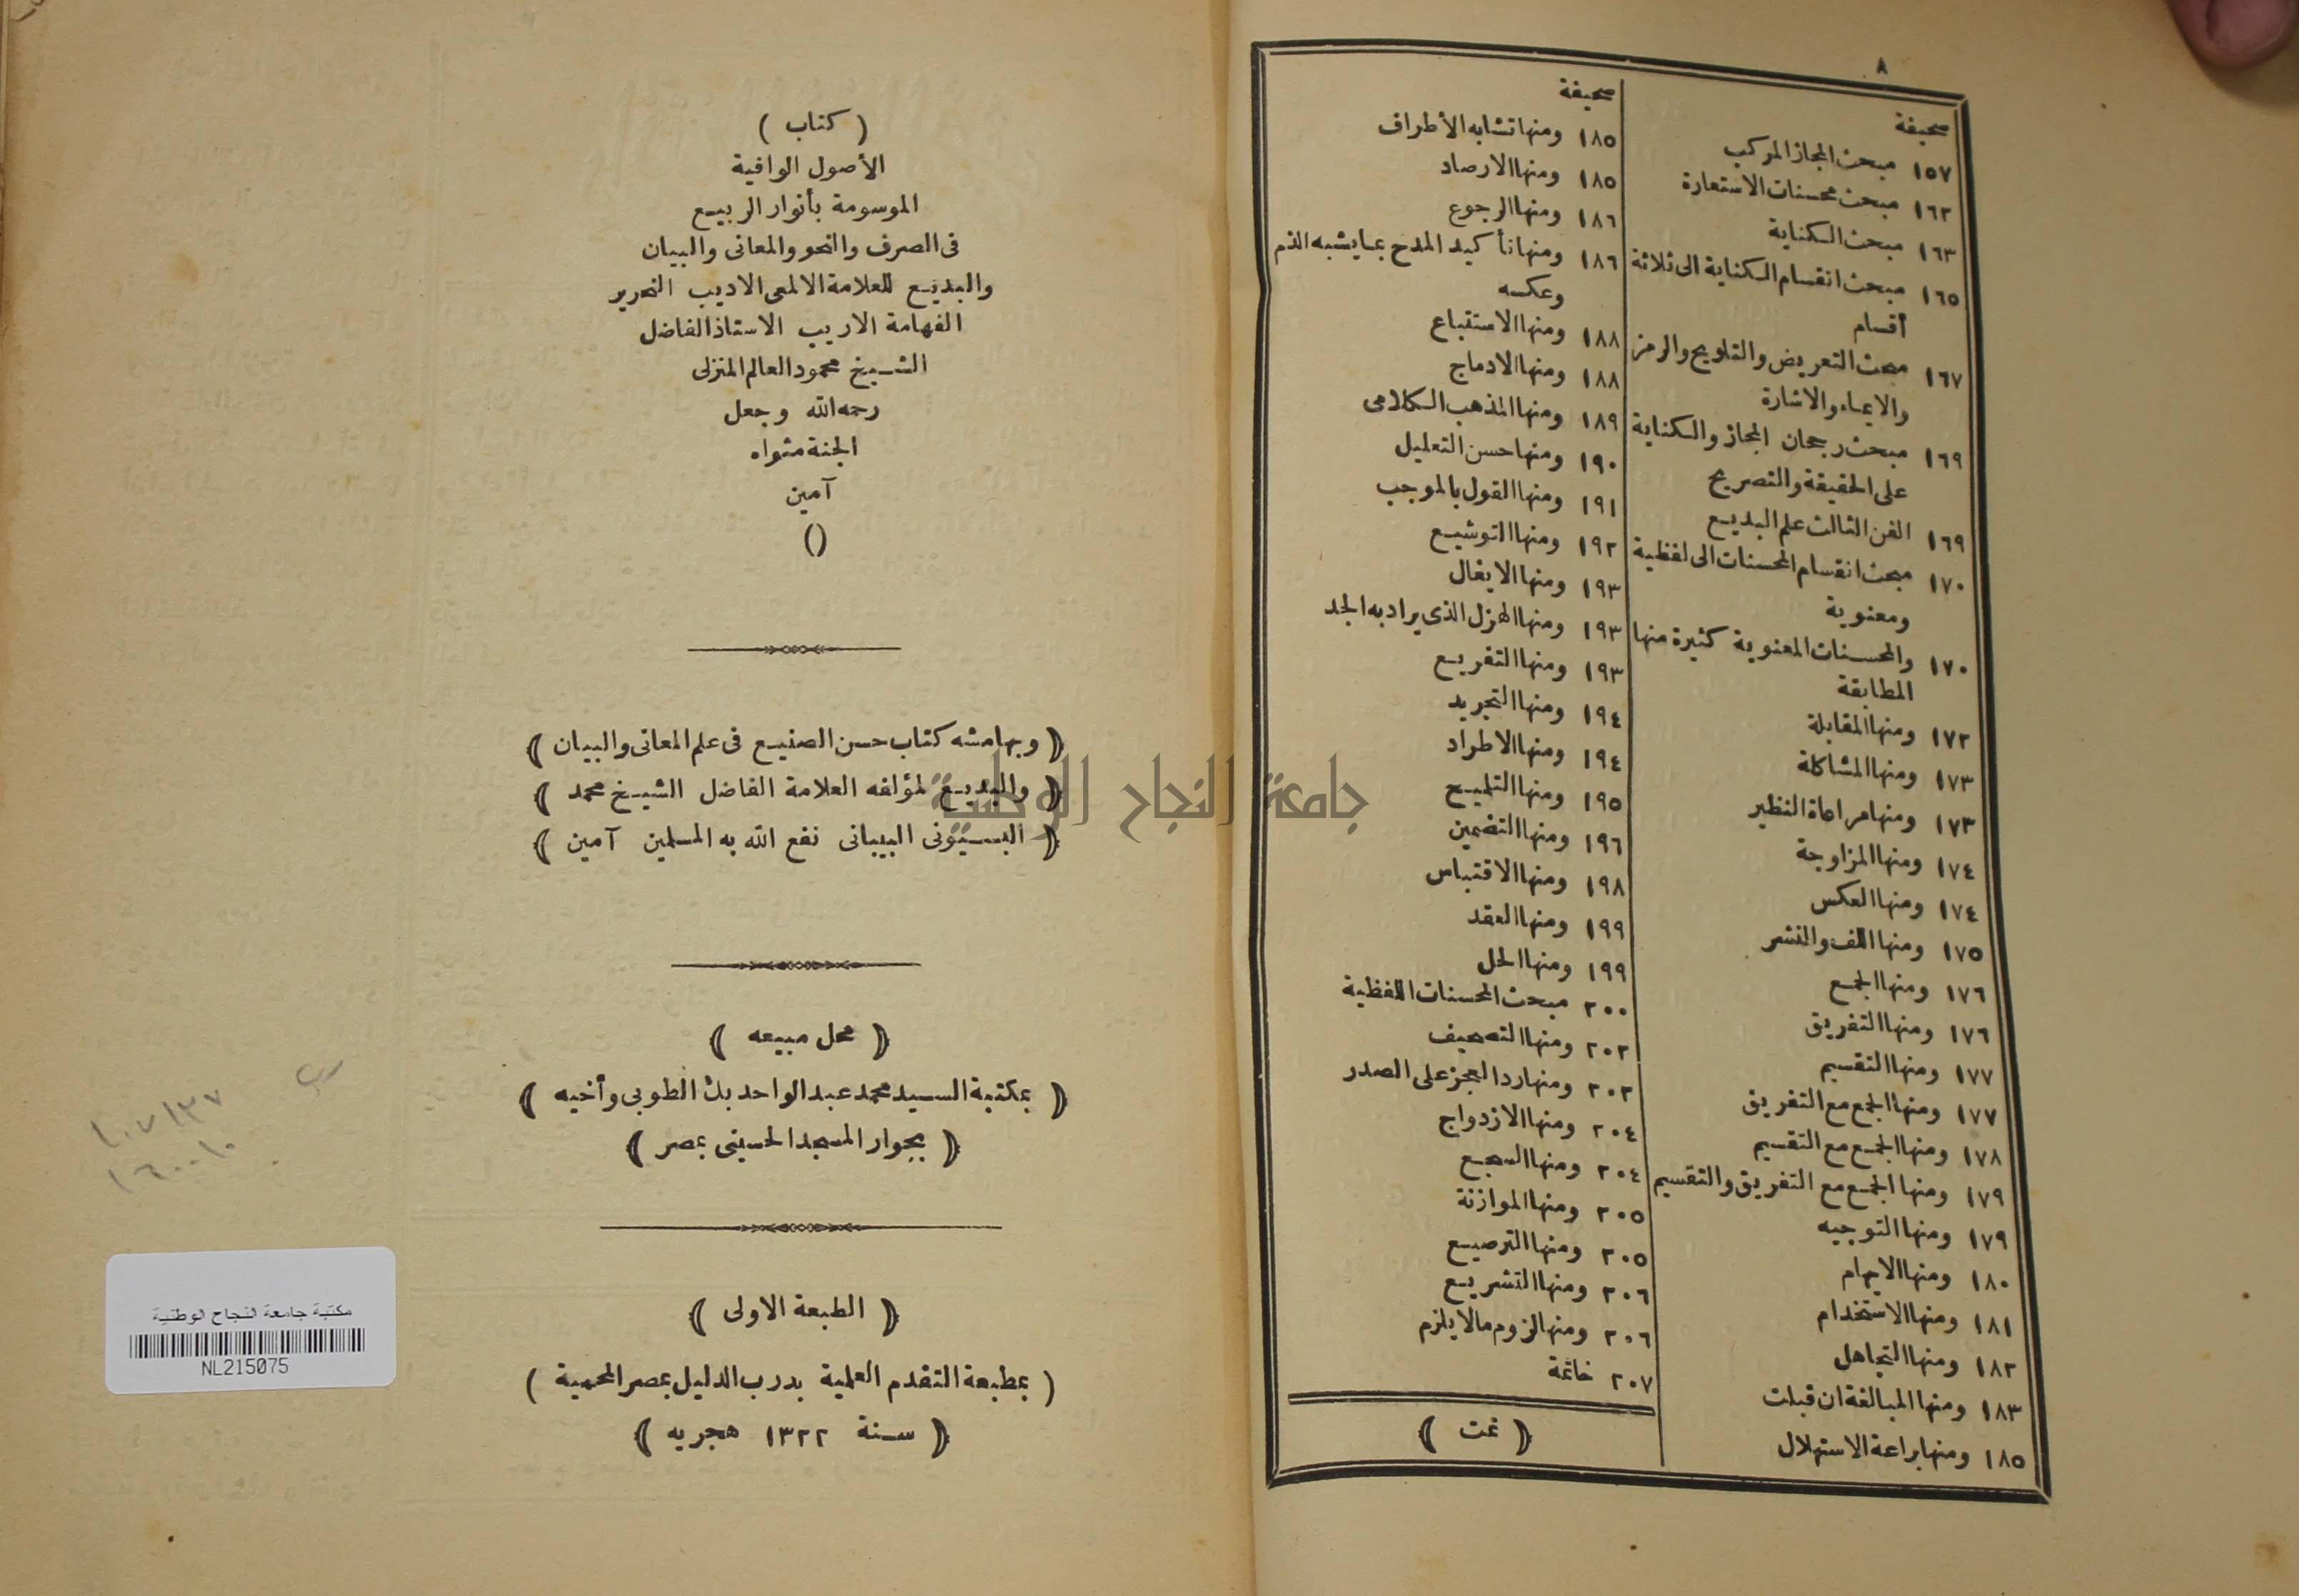 ٨
صحيفة
١٥٧ مبحث المجاز المركب
١٦٢ مبحث محسنات الاستعارة
١٦٣ مبحث الكناية
١٦٥ مبحث انقسام الكناية الى ثلاثة
أقسام
١٦٧ مبحث التعريض والتلويح والرمز
والايماء والاشارة
١٦٩ مبحث رجحان المجاز والكناية
على الحقيقة والتصريح
١٦٩ الفن الثالث علم البديع
١٧٠ مبحث انقسام المحسنات الى لفظية
ومعنوية
١٧٠ والمحسنات المعنوية كثيرة منها
المطابقة
١٧٢ ومنها المقابلة
١٧٣ ومنها المشاكلة
١٧٣ ومنها مراعاة النظير
١٧٤ ومنها المزاوجة
١٧٤ ومنها العكس
١٧٥ ومنها اللف والنشر
١٧٦ ومنها الجمع
١٧٦ ومنها التفريق
١٧٧ ومنها التقسيم
١٧٧ ومنها الجمع مع التفريق
١٧٨ ومنها الجمع مع التقسيم
١٧٩ ومنها الجمع مع التفريق والتقسيم
١٧٩ ومنها التوجيه
١٨٠ ومنها الايهام
١٨١ ومنها الاستخدام
١٨٢ ومنها التجاهل
١٨٣ ومنها المبالغة ان قبلت
١٨٥ ومنها براعة الاستهلال
صحيفة
١٨٥ ومنها تشابه الأطراف
١٨٥ ومنها الارصاد
١٨٦ ومنها الرجوع
١٨٦ ومنها تأكيد المدح بما يشبه الذم
وعكسه
١٨٨ ومنها الاستتباع
١٨٨ ومنها الادماج
١٨٩ ومنها المذهب الكلامى
١٩٠ ومنها حسن التعليل
١٩١ ومنها القول بالموجب
١٩٢ ومنها التوشيع
١٩٣ ومنها الايغال
١٩٣ ومنها الهزل الذى يراد به الجد
١٩٣ ومنها التفريع
١٩٤ ومنها التجريد
١٩٤ ومنها الاطراد
١٩٥ ومنها التلميح
١٩٦ ومنها التضمين
١٩٨ ومنها الاقتباس
١٩٩ ومنها العقد
١٩٩ ومنها الحل
٢٠٠ مبحث المحسنات اللفظية
٢٠٢ ومنها التصحيف
٢٠٢ ومنها رد العجز على الصدر
٢٠٤ ومنها الازدواج
٢٠٤ ومنها السجع
٢٠٥ ومنها الموازنة
٢٠٥ ومنها الترصيع
٢٠٦ ومنها التشريع
٢٠٦ ومنها لزوم ما لا يلزم
٢٠٧ خاتمة
( تمت )
( كتاب )
الأصول الوافية
الموسومة بأنوار الربيع
فى الصرف والنحو والمعانى والبيان
والبديع للعلامة الالمعى الاديب النحرير
الفهامة الاريب الاستاذ الفاضل
الشيخ محمود العالم المنزلى
رحمه الله وجعل
الجنة مثواه
آمين
()
( وبهامشه كتاب حسن الصنيع فى علم المعانى والبيان )
( والبديع لمؤلفه العلامة الفاضل الشيخ محمد )
( البسيونى البيبانى نفع الله به المسلمين آمين )
جامعة النجاح الوطنية
( محل مبيعه )
( بمكتبة السيد محمد عبد الواحد بك الطوبى وأخيه )
( بجوار المسجد الحسينى بمصر )
( الطبعة الاولى )
( بمطبعة التقدم العلمية بدرب الدليل بمصر المحمية )
( سنة ١٣٢٢ هجريه )
مكتبة جامعة النجاح الوطنية
NL215075